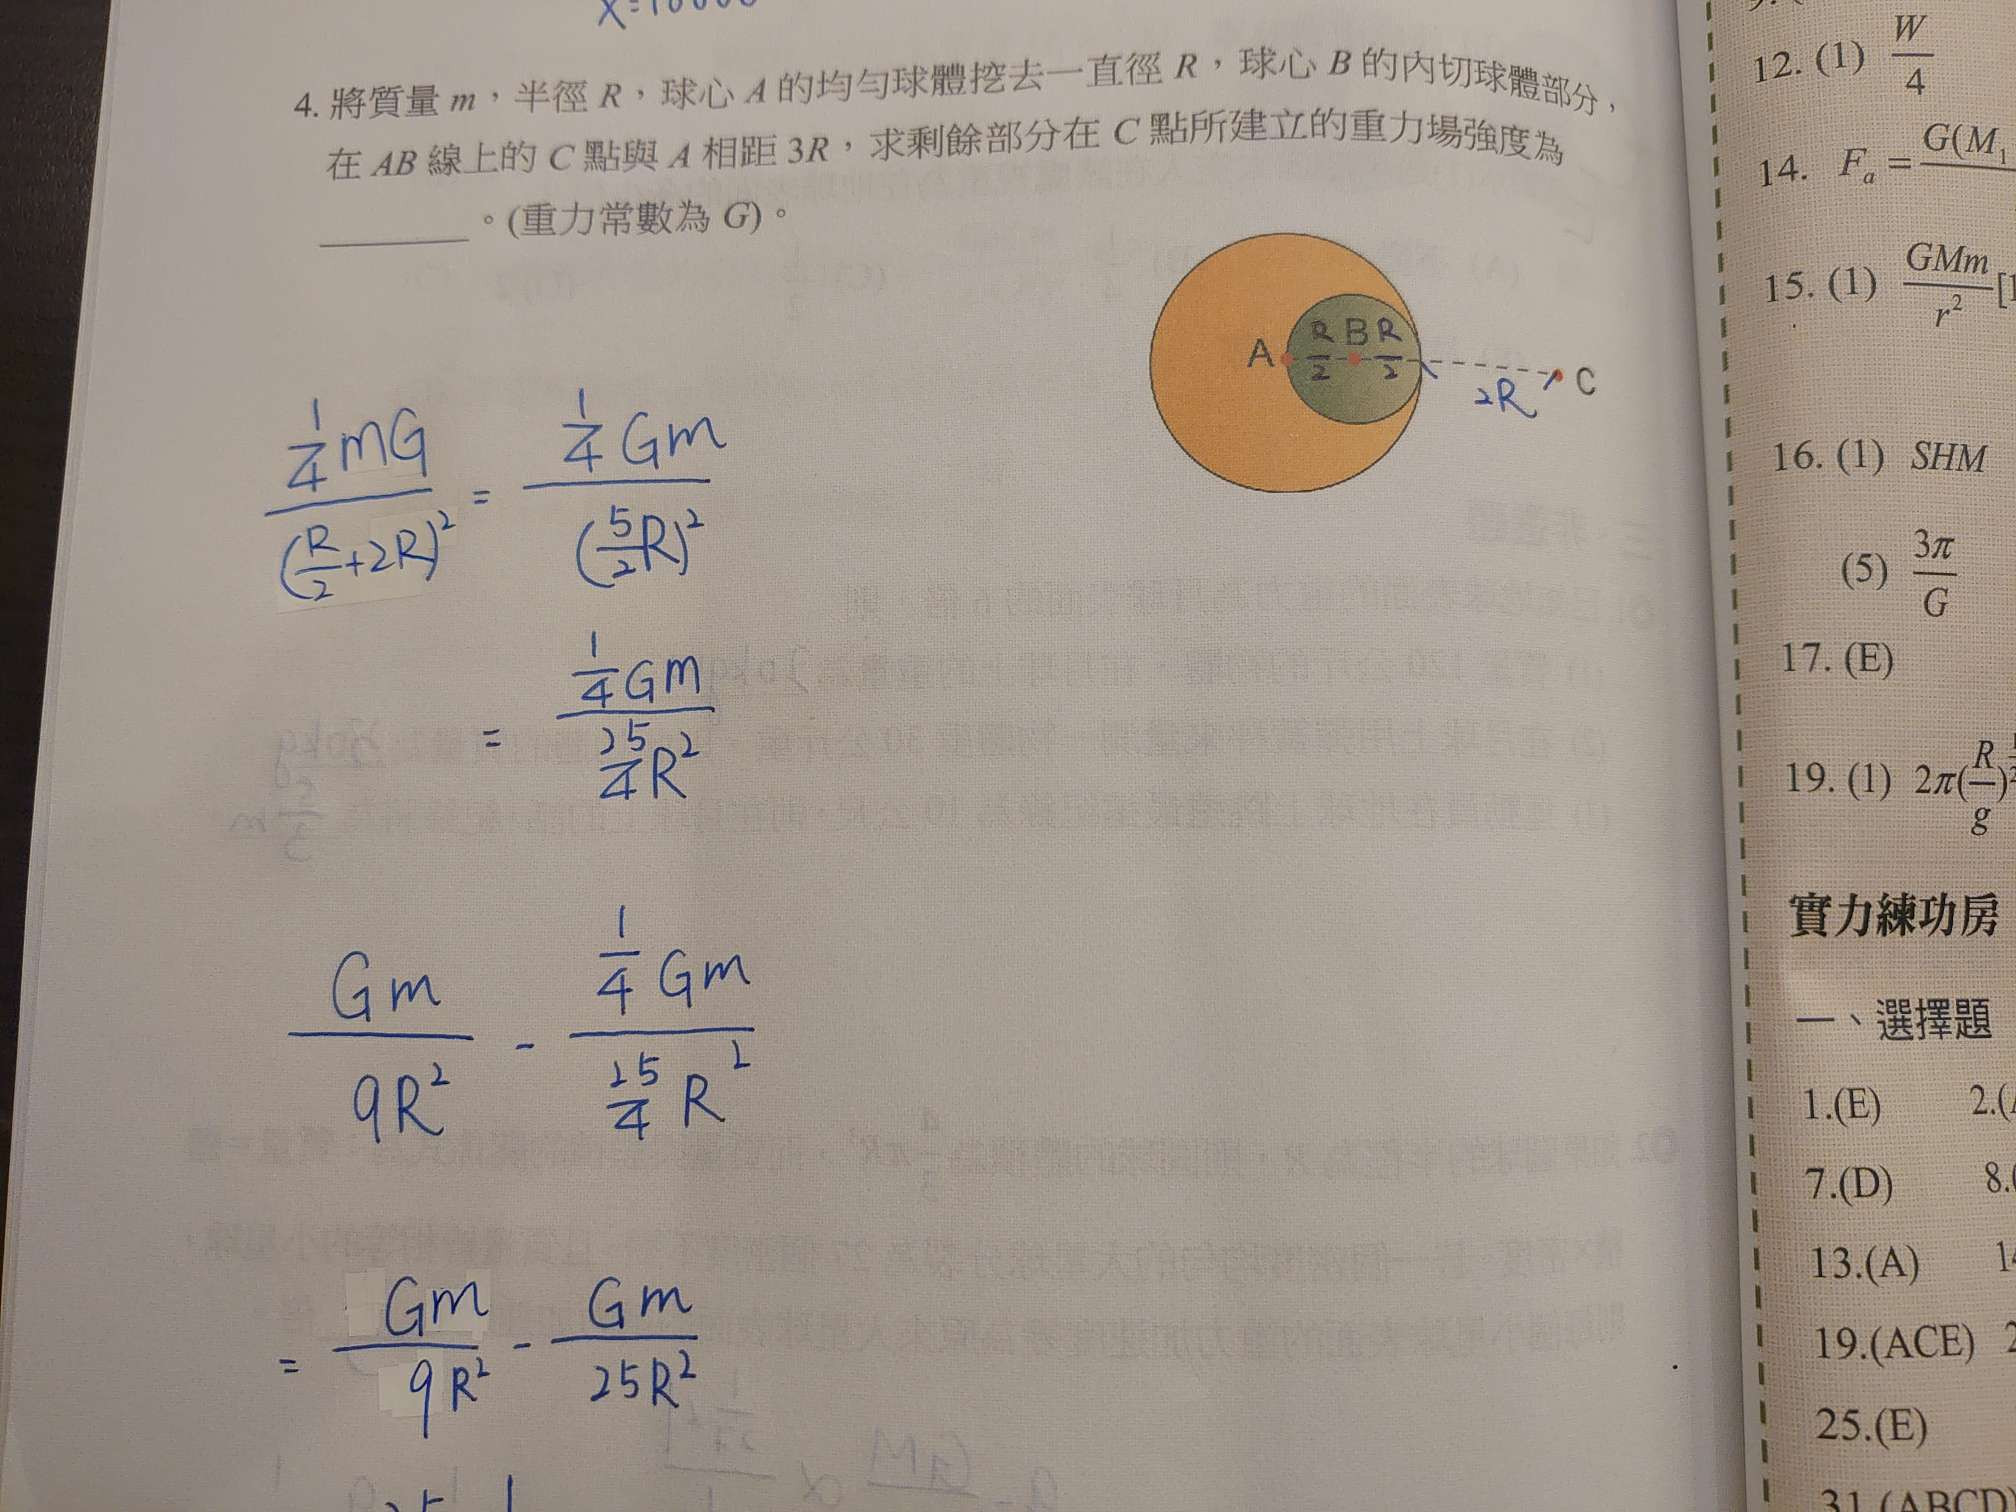 x=10000
4. 將質量 m，半徑 R，球心 A 的均勻球體挖去一直徑 R，球心 B 的內切球體部分，
在 AB 線上的 C 點與 A 相距 3R，求剩餘部分在 C 點所建立的重力場強度為
______。(重力常數為 G)。
A R/2 B R/2 2R C
(1/4 mG)/(R/2+2R)² = (1/4 Gm)/(5/2 R)²
= (1/4 Gm)/(25/4 R²)
Gm/9R² - (1/4 Gm)/(25/4 R²)
= Gm/9R² - Gm/25R²
12. (1) W/4
14. Fₐ = G(M₁
15. (1) GMm/r² [1
16. (1) SHM
(5) 3π/G
17. (E)
19. (1) 2π(R/g)
實力練功房
一、選擇題
1.(E) 2.(A
7.(D) 8.(
13.(A) 14
19.(ACE) 2
25.(E)
31.(ABCD)